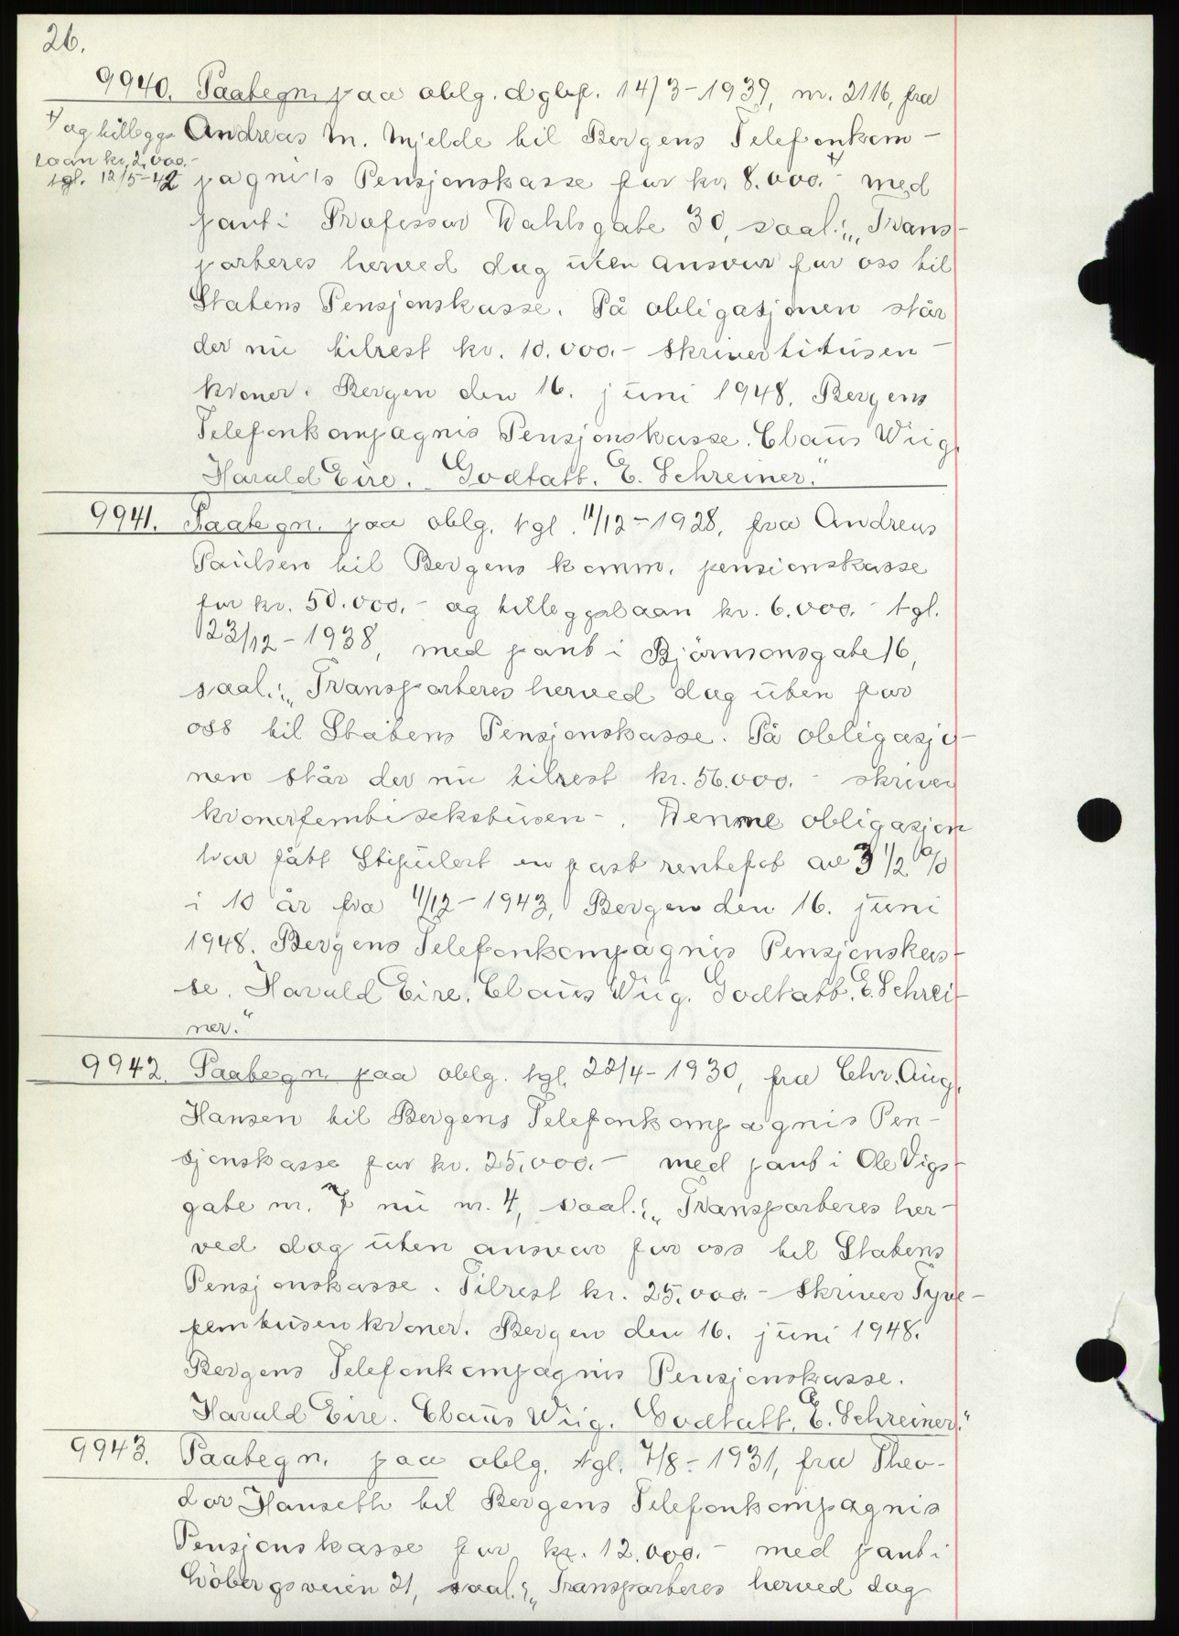 26.
9940. Paategn. paa oblg. dgbf. 14/3-1939, nr. 2116, fra
+/ og tilleggs Andreas M. Mjelde til Bergens Telefonkom-
laan kr. 2.000.-
tgl. 12/5-42 pagnis Pensjonskasse for kr 8.000.- +/ med
pant i Professor Dahlsgate 30, saal.: „Trans-
porteres herved dog uten ansvar for oss til
Statens Pensjonskasse. På obligasjonen står
der nu tilrest kr. 10.000.- skriver titusen-
kroner. Bergen den 16. juni 1948. Bergens
Telefonkompagnis Pensjonskasse. Claus Wiig.
Harald Eire. Godtatt. E. Schreiner."
9941. Paategn. paa oblg. tgl. 11/12-1928, fra Andreas
Paulsen til Bergens komm. pensionskasse
for kr. 50.000.- og tilleggslaan kr. 6.000.- tgl.
23/12-1938, med pant i Björnsonsgate 16,
saal.: „Transporteres herved dog uten for
oss til Statens Pensjonskasse. På obligasjo-
nen står der nu tilrest kr. 56.000.- skriver
kronerfemtisekstusen-. Denne obligasjon
har fått Stipulert en fast rentefot av 3 1/2 %
i 10 år fra 11/12-1943, Bergen den 16. juni
1948. Bergens Telefonkompagnis Pensjonskas-
se. Harald Eire. Claus Wiig. Godtatt. E. Schrei-
ner."
9942. Paategn. paa oblg. tgl. 22/4-1930, fra Chr. Aug.
Hansen til Bergens Telefonkompagnis Pen-
sjonskasse for kr. 25.000.- med pant i Ole Vigs-
gate nr. 7 nu nr. 4, saal.: „Transporteres her-
ved dog uten ansvar for oss til Statens
Pensjonskasse. Tilrest kr. 25.000.- Skriver Tyve-
femtusenkroner. Bergen den 16. juni 1948.
Bergens Telefonkompagnis Pensjonskasse.
Harald Eire. Claus Wiig. Godtatt. E. Schreiner."
9943. Paategn. paa oblg. tgl. 7/8-1931, fra Theo-
dor Hanseth til Bergens Telefonkompagnis
Pensjonskasse for kr. 12.000.- med pant i
Løbergsveien 21, saal.: „Transporteres herved dog